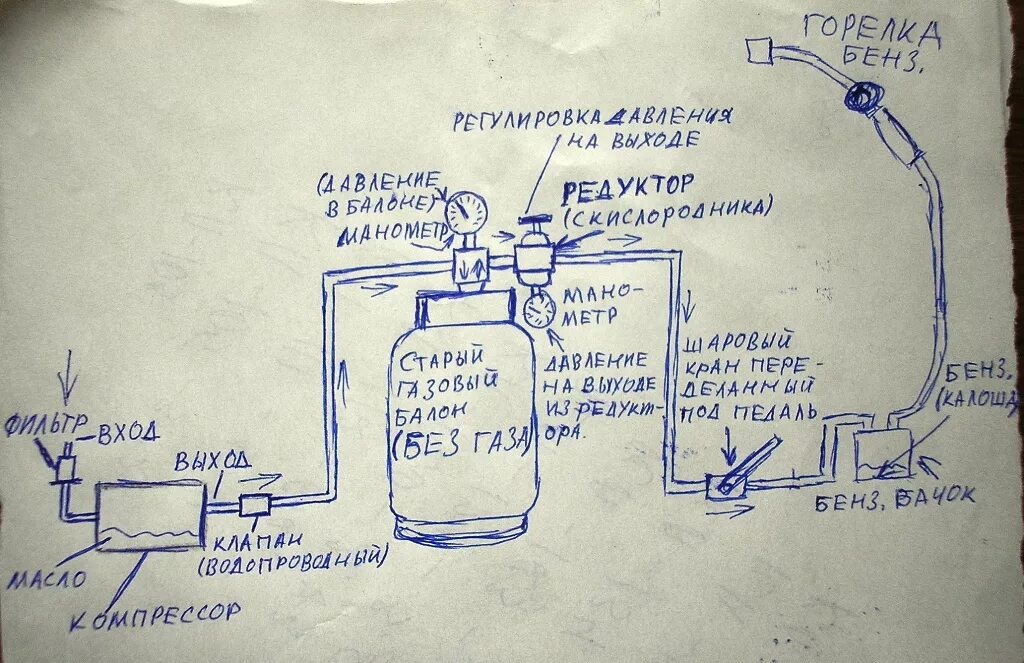 ГОРЕЛКА
БЕНЗ.
РЕГУЛИРОВКА ДАВЛЕНИЯ
НА ВЫХОДЕ
(ДАВЛЕНИЕ
В БАЛОНЕ)
МАНОМЕТР
РЕДУКТОР
(С КИСЛОРОДНИКА)
МАНО-
МЕТР
ДАВЛЕНИЕ
НА ВЫХОДЕ
ИЗ РЕДУКТ-
ОРА.
ШАРОВЫЙ
КРАН ПЕРЕ-
ДЕЛАННЫЙ
ПОД ПЕДАЛЬ
БЕНЗ.
(КАЛОША)
БЕНЗ. БАЧОК
СТАРЫЙ
ГАЗОВЫЙ
БАЛОН
(БЕЗ ГАЗА)
ФИЛЬТР
ВХОД
ВЫХОД
КЛАПАН
(ВОДОПРОВОДНЫЙ)
МАСЛО
КОМПРЕССОР